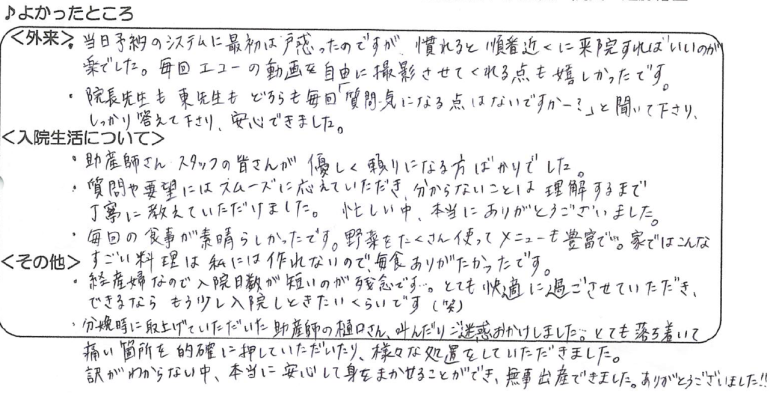 ♪よかったところ
<外来>・当日予約のシステムに最初は戸惑ったのですが、慣れると順番近くに来院すればいいのが
楽でした。毎回エコーの動画を自由に撮影させてくれる点も嬉しかったです。
・院長先生も東先生もどちらも毎回「質問・気になる点はないですかー?」と聞いて下さり、
しっかり答えて下さり、安心できました。
<入院生活について>
・助産師さん、スタッフの皆さんが優しく頼りになる方ばかりでした。
・質問や要望にはスムーズに応えていただき、分からないことは理解するまで
丁寧に教えていただけました。忙しい中、本当にありがとうございました。
・毎回の食事が素晴らしかったです。野菜をたくさん使ってメニューも豊富で…。家ではこんな
すごい料理は私には作れないので、毎食ありがたかったです。
<その他>・経産婦なので入院日数が短いのが残念です…。とても快適に過ごさせていただき、
できるならもう少し入院しときたいくらいです(笑)
・分娩時に取上げていただいた助産師の樋口さん、叫んだりご迷惑おかけしました。とても落ち着いて
痛い箇所を的確に押していただいたり、様々な処置をしていただきました。
訳がわからない中、本当に安心して身をまかせることができ、無事出産できました。ありがとうございました!!